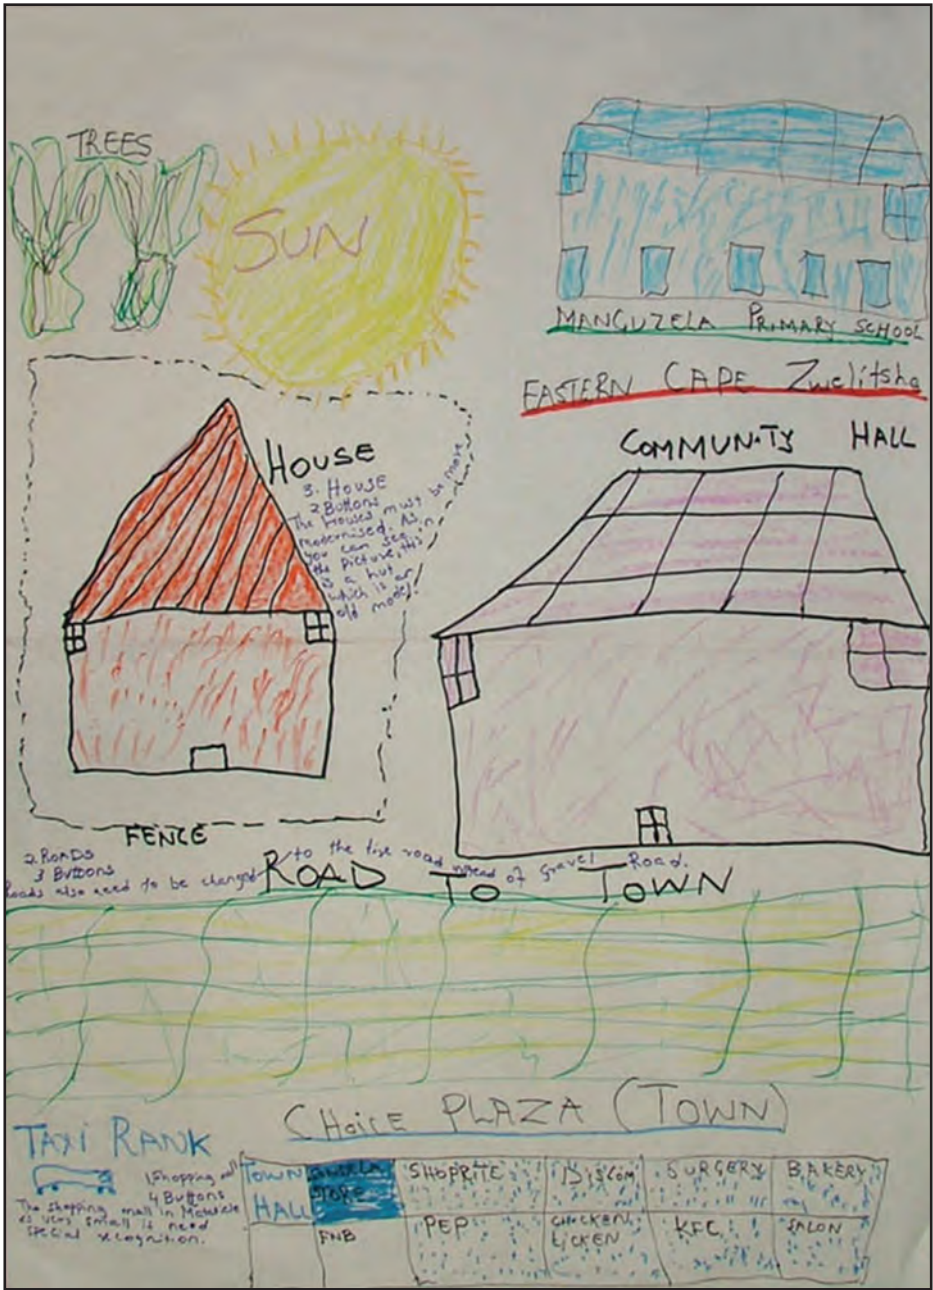 TREES
SUN
MANGUZELA PRIMARY SCHOOL
EASTERN CAPE Zwelitsha
HOUSE
3. HOUSE
2 Buttons
The Houses must be more
modernised. As
you can see in
the picture, this
is a hut
which is an
old model.
COMMUNITY HALL
FENCE
2. ROADS
3 Buttons
Roads also need to be changed to the road instead of gravel Road.
ROAD TO TOWN
CHOICE PLAZA (TOWN)
TAXI RANK
1 Shopping mall
4 Buttons
The shopping mall in
is very small is need
special recognition.
TOWN
HALL
STORE
SHOPRITE
SURGERY
BAKERY
FNB
PEP
CHICKEN
LICKEN
KFC
SALON